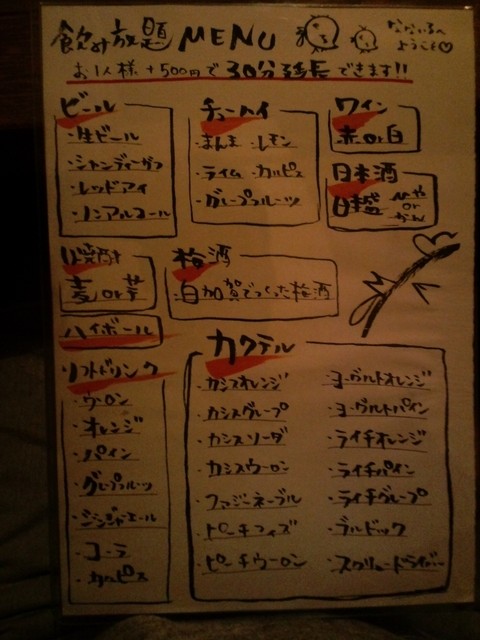 飲み放題 MENU
なないろへ
ようこそ♡
お1人様 +500円で 30分延長できます!!
ビール
・生ビール
・シャンディーガフ
・レッドアイ
・ノンアルコール
チューハイ
・まんま ・レモン
・ライム ・カルピス
・グレープフルーツ
ワイン
赤 or 白
日本酒
日盛 ひや or かん
焼酎
麦 or 芋
梅酒
・自加賀でつくった梅酒
ハイボール
ソフトドリンク
・ウーロン
・オレンジ
・パイン
・グレープフルーツ
・ジンジャエール
・コーラ
・カルピス
カクテル
・カシスオレンジ
・カシスグレープ
・カシスソーダ
・カシスウーロン
・ファジーネーブル
・ピーチフィズ
・ピーチウーロン
・ヨーグルトオレンジ
・ヨーグルトパイン
・ライチオレンジ
・ライチパイン
・ライチグレープ
・ブルドック
・スクリュードライバー